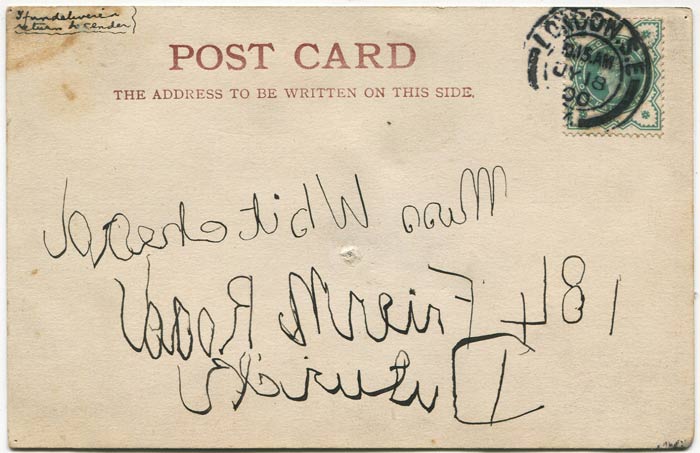 If undelivered
return to sender
POST CARD
THE ADDRESS TO BE WRITTEN ON THIS SIDE.
LONDON. S.E
15 AM
18
00
Miss Whitehead
184 Friern Road
Dulwich